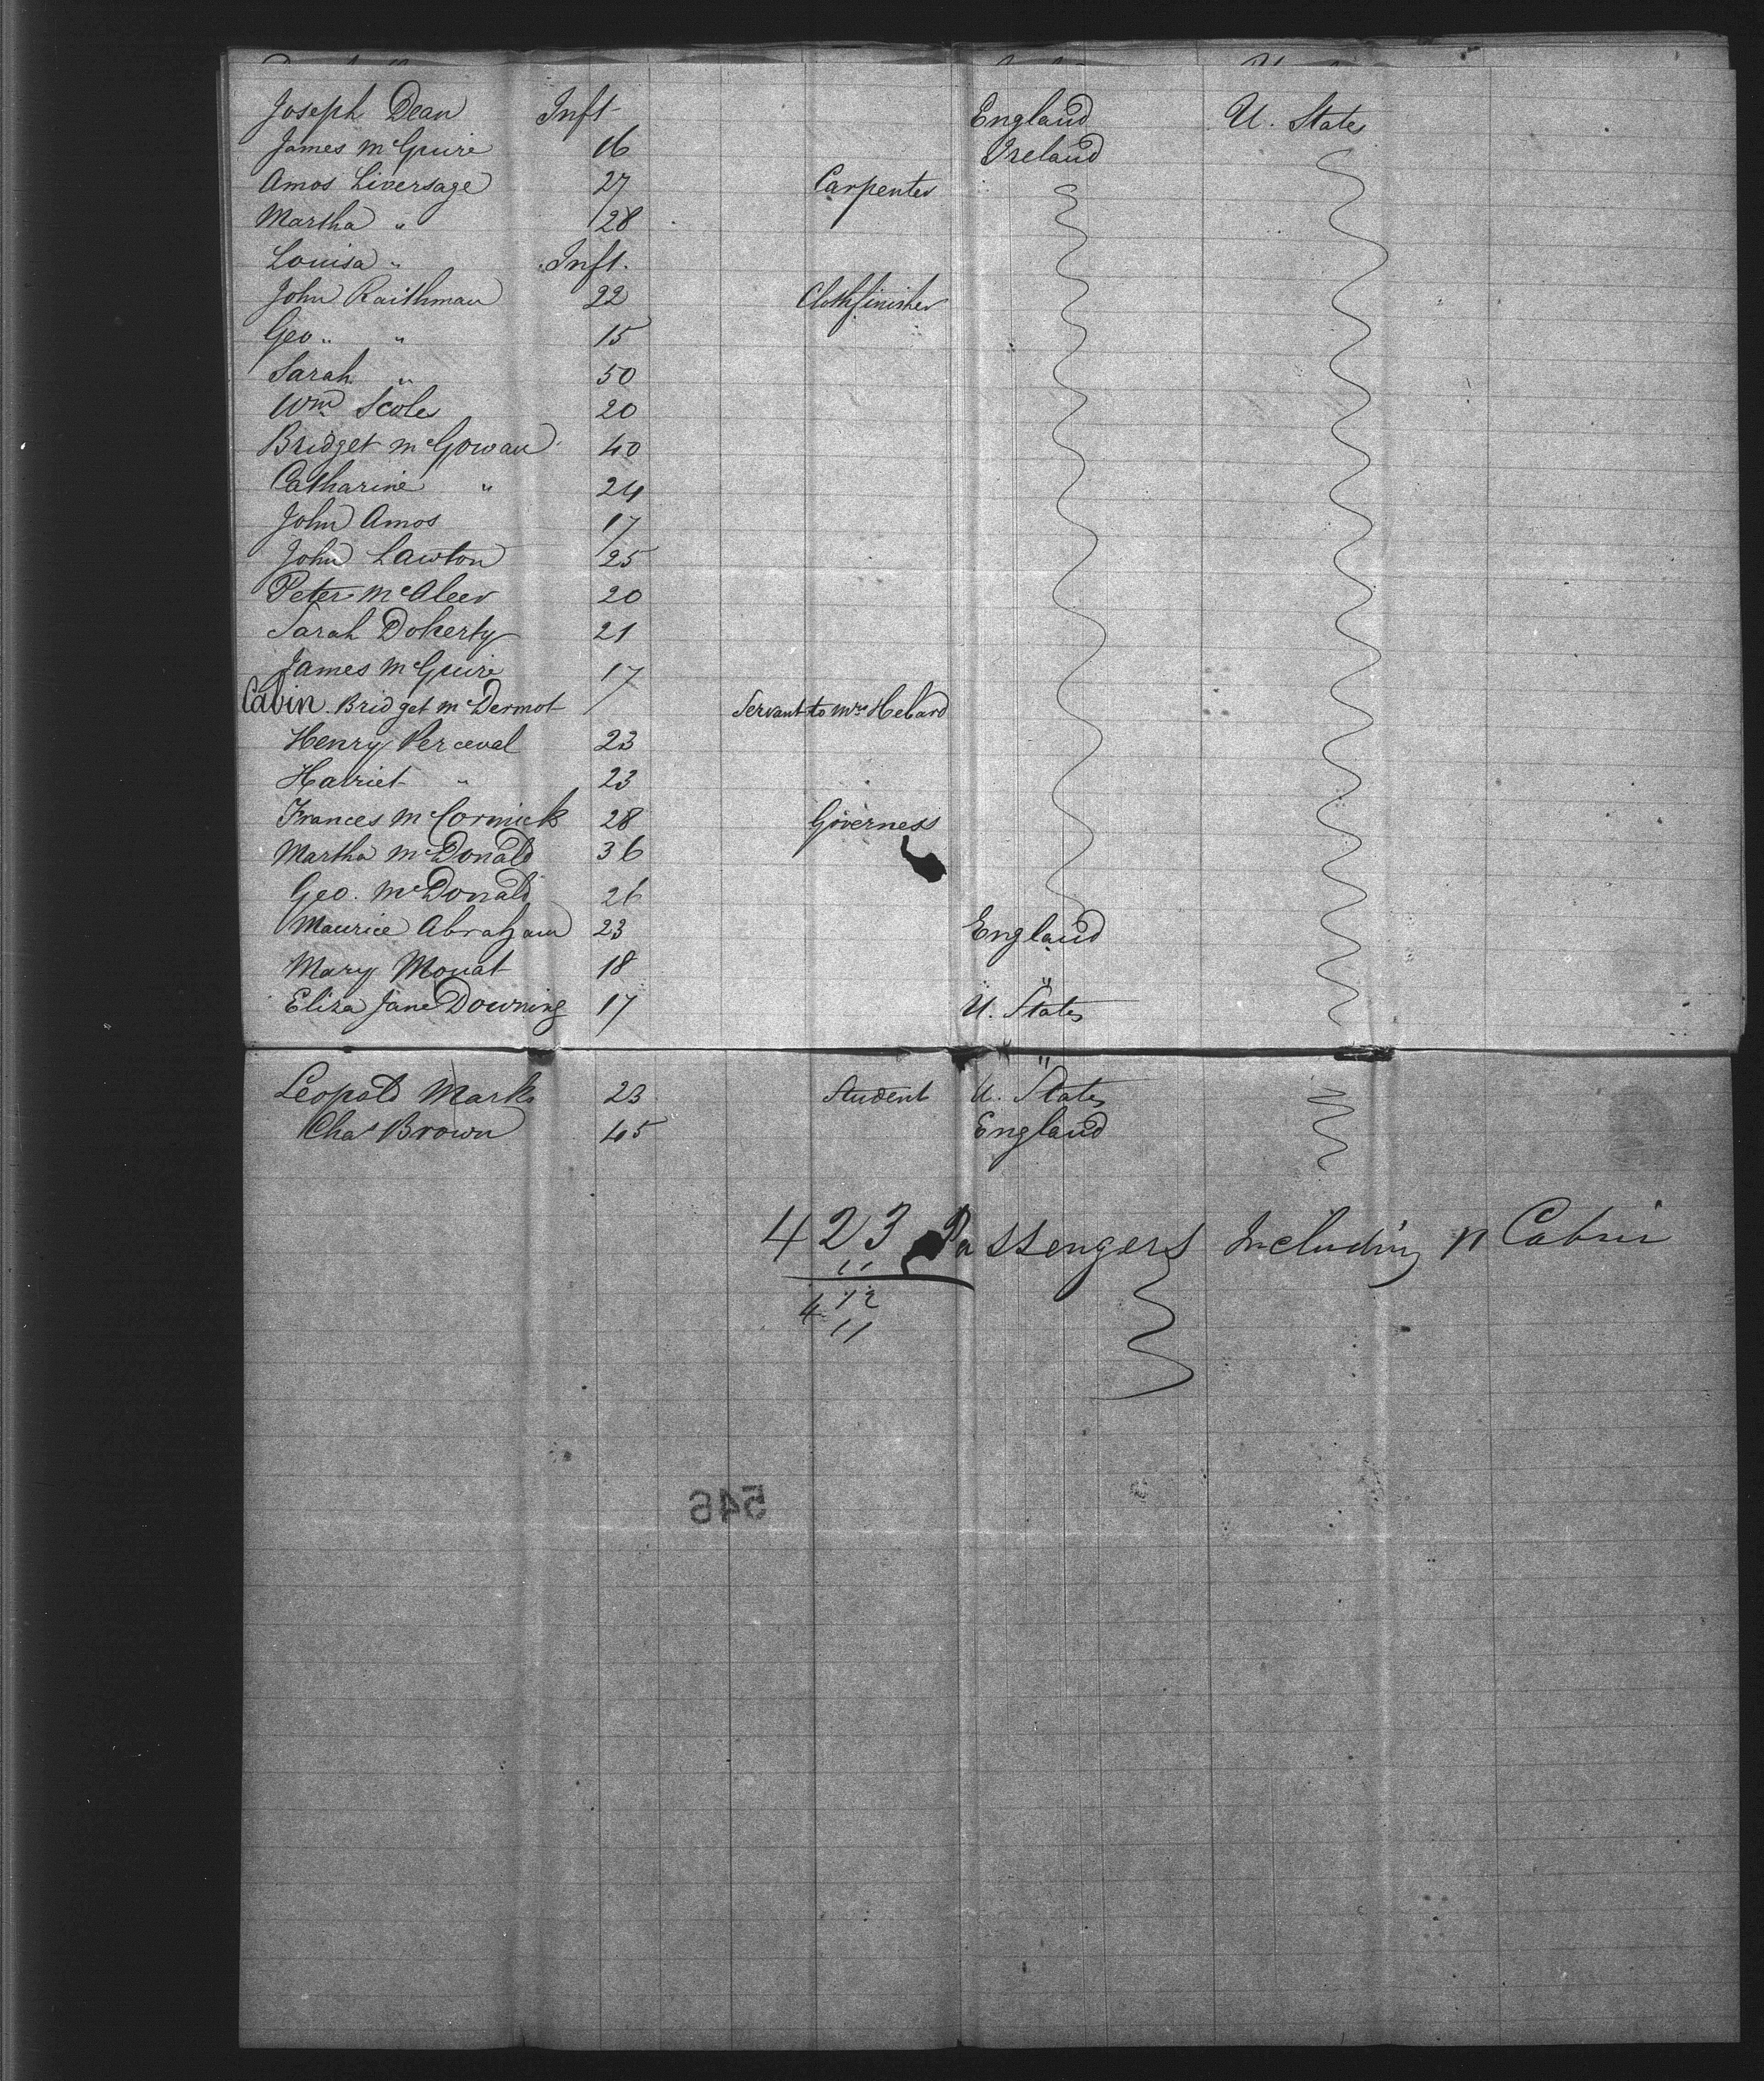 Joseph Dean Inft England U. States
James McGuire 16 Ireland
Amos Liversage 27 Carpenter
Martha " 28
Louisa " Inft.
John Raithman 22 Clothfinisher
Geo " " 15
Sarah " 50
Wm Scoles 20
Bridget McGowan 40
Catharine " 24
John Amos 17
John Lawton 25
Peter McAleer 20
Sarah Doherty 21
James McGuire 17
Cabin. Bridget McDermot Servant to Mrs Hebard
Henry Perceval 23
Harriet " 23
Frances McCormick 28 Governess
Martha McDonald 36
Geo. McDonald 26
Maurice Abraham 23 England
Mary Mouat 18 "
Eliza Jane Downing 17 U. States
"
Leopold Marks 23 Student U. States
Chas Brown 45 England
423 Passengers Including 11 Cabin
11
412
11
546